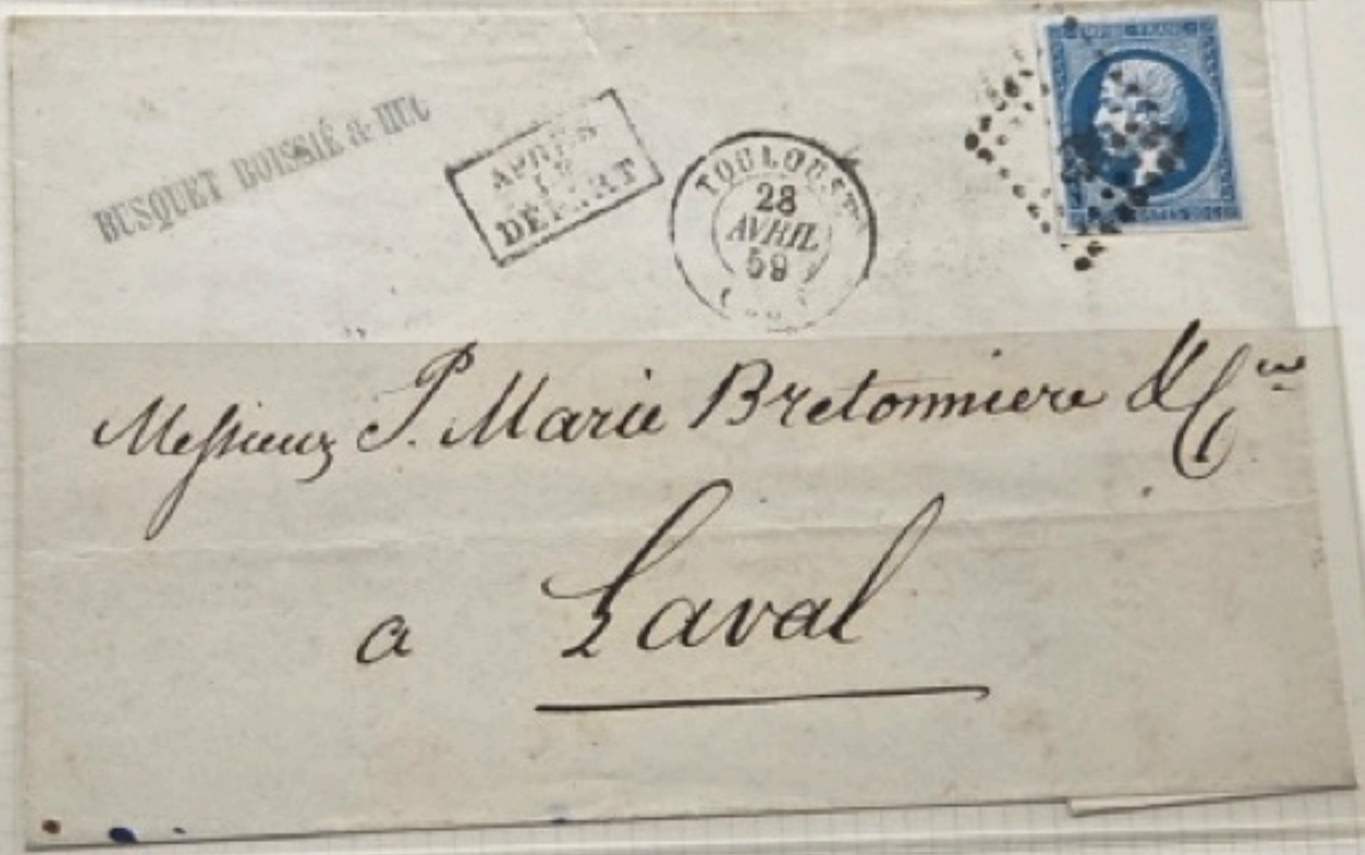 BUSQUET BOISSIÉ & HUC
APRÈS
LE
DÉPART
TOULOUSE
28
AVRIL
59
EMPIRE FRANC
Messieurs P. Marie Bretonniere & Cie
a Laval